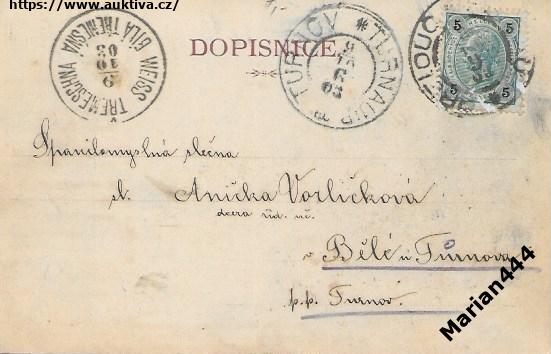 https://www.auktiva.cz/
DOPISNICE.
WEISS TŘEMESCHNA
BÍLÁ TŘEMEŠNÁ
9
10
03
TURNOV * TURNAU
5 5
5 5
Spanilomyslná slečna
sl. Anička Vorličková
dcera říd. uč.
v Bělé u Turnova
p.p. Turnov.
Marian444